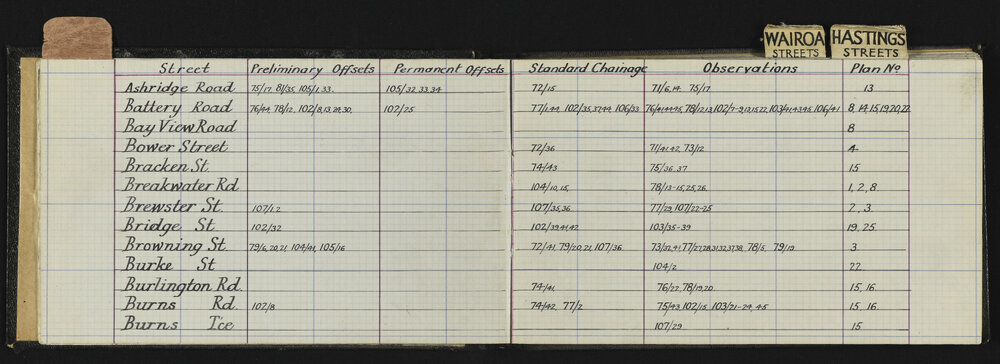 WAIROA STREETS
HASTINGS STREETS
Street Preliminary Offsets Permanent Offsets Standard Chainage Observations Plan No
Ashridge Road 75/17, 81/35, 105/1,33. 105/32,33,34 72/15 71/6,14. 75/17 13
Battery Road 76/44, 78/12, 102/8,13,29,30. 102/25 77/1,44, 102/35,37,44, 106/33 8, 14, 15, 19, 20, 22
Bay View Road 8
Bower Street 72/36 71/41,42, 73/12 4
Bracken St. 74/43 75/36,37. 15
Breakwater Rd 104/10,15, 78/13-15,25,26. 1, 2, 8
Brewster St. 107/1,2 107/35,36 77/29 107/22-25 2, 3.
Bridge St 102/32 102/39,41,42 103/35-39 19, 25.
Browning St 79/6,20,21, 104/41, 105/16 72/41, 79/20,21, 107/36 78/5 79/19 3.
Burke St 104/2 22
Burlington Rd. 74/41, 76/27, 78/19,20. 15, 16.
Burns Rd. 102/8 74/42, 77/2 75/43 102/15 103/21-24, 45 15, 16.
Burns T'ce 107/29 15